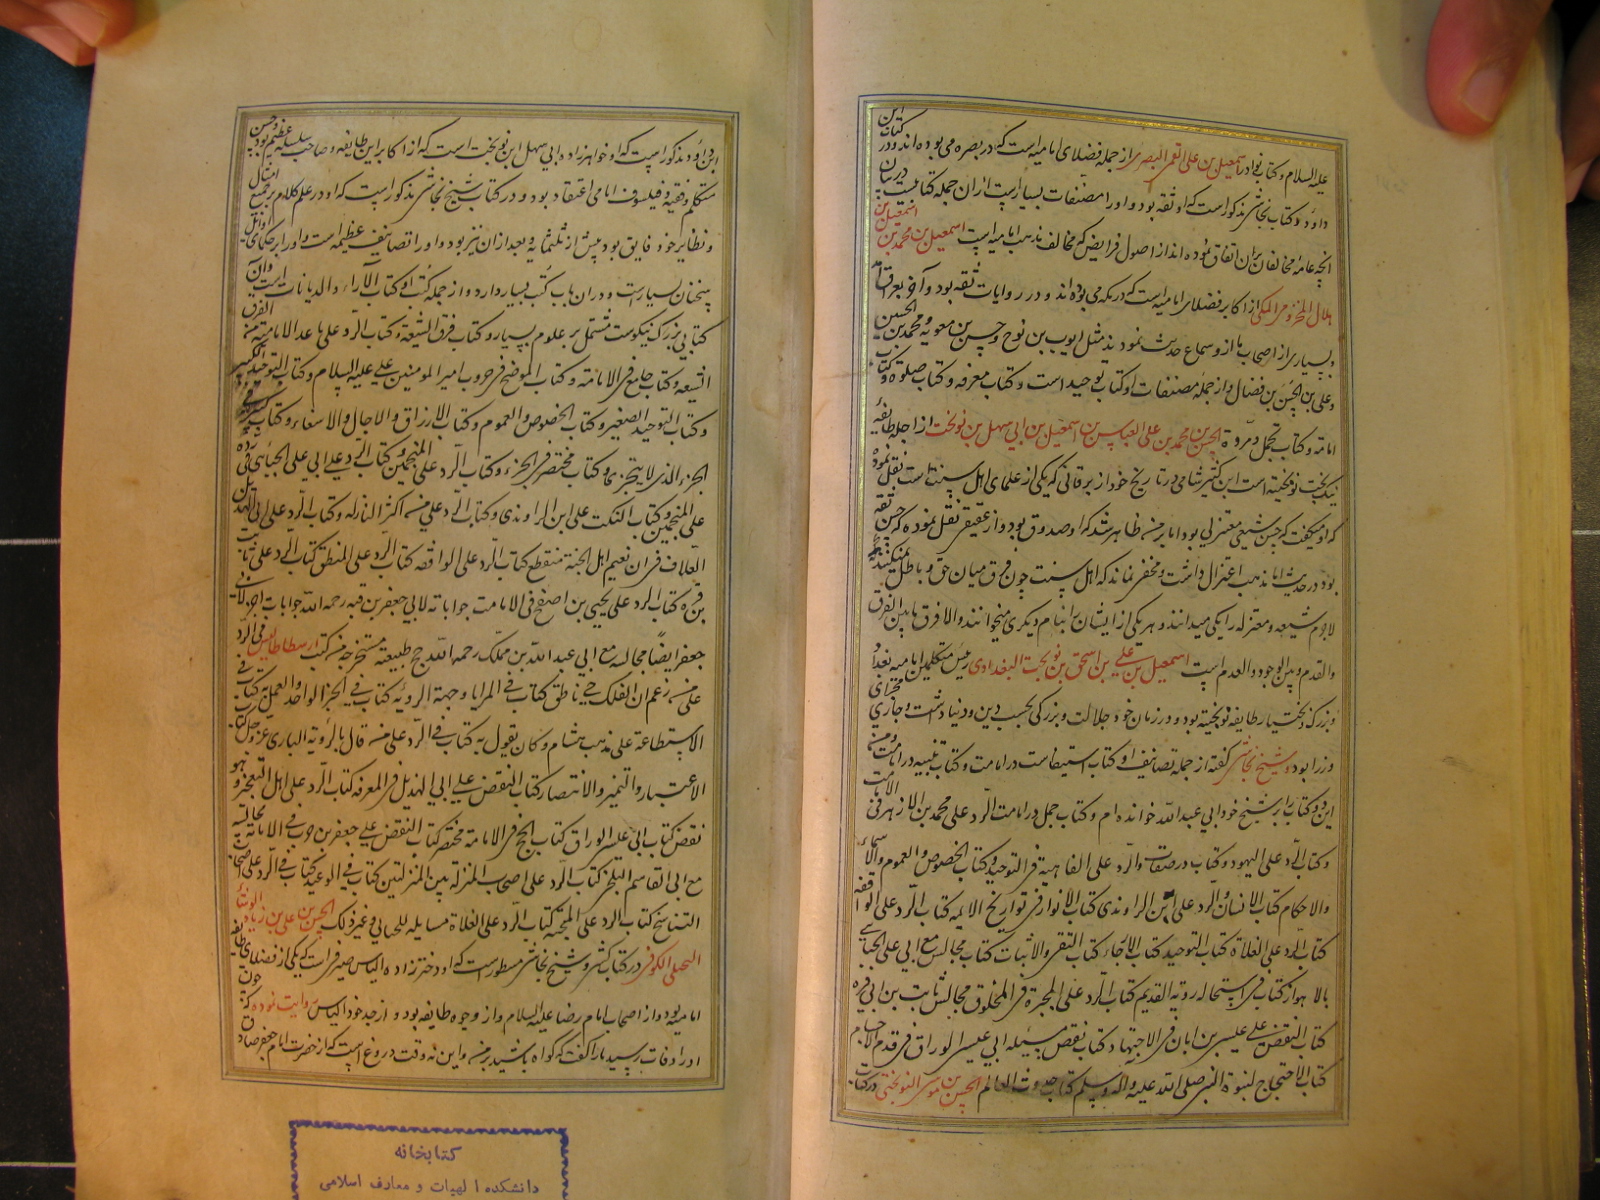 علیه السلام و کتاب نوادر اسمعیل بن علی القمی البصری از جمله فضلای امامیه است که در بصره می بوده اند و در کتاب ابن
داود و کتاب نجاشی مذکور است که او ثقه بود و او را مصنفات بسیار است از آن جمله کتابیست در بیان
انچه عامه مخالفان بر ان اتفاق نموده اند از اصول فرایض که مخالف مذهب امامیه است اسمعیل بن محمد بن اسمعیل بن
هلال المخزومی المکی از اکابر فضلای امامیه است که در مکه می بوده اند و در روایات ثقه بود و آخر بعراق آمد
و بسیاری از اصحاب ما از و سماع حدیث نمودند مثل ایوب بن نوح و حسن بن معویه و محمد بن الحسین
و علی بن الحسن بن فضال و از جمله مصنفات او کتاب توحید است و کتاب معرفه و کتاب صلوة و کتاب
امامة و کتاب تجمل و مروة الحسن بن محمد بن علی العباس بن اسمعیل بن ابی سهل بن نوبخت از اجله طایفه
نیکبخت نوبختیه است ابن کثیر شامی در تاریخ خود از برقانی که یکی از علمای اهل سنت است نقل نموده
که او میگفت که حسن شیعی معتزلی بود اما بر من ظاهر شد که او صدوق بود و از عقیقی نقل نموده که حسن ثقه
بود در حدیث اما مذهب اعتزال داشت و مخفی نماند که اهل سنت چون فرق میان حق و باطل نمیکنند
لاجرم شیعه و معتزله را یکی میدانند و هر یکی از ایشان را بنام دیگری میخوانند والا فرق مابین الفرق
والقدم و بین الوجود والعدم است اسمعیل بن علی بن اسحق بن نوبخت البغدادی رئیس متکلمین امامیه بغداد
و بزرگ نیکبخت طایفه نوبختیه بود و در زمان خود جلالت و بزرگی بحسب دین و دنیا داشت و جاری مجرای
وزرا بود و شیخ نجاشی گفته از جمله تصانیف او کتاب استیفاست در امامت و کتاب تنبیه در امامت و من
این دو کتاب را بر شیخ خود ابی عبد الله خوانده ام و کتاب جمل در امامت الرد علی محمد بن الازهر فی الامامت
و کتاب الرد علی الیهود و کتاب در صفات والرد علی الفاهیة فی التوحید و کتاب الخصوص والعموم والاسماء
والاحکام کتاب الانسان والرد علی ابن الراوندی کتاب الانوار فی تواریخ الایمه کتاب الرد علی الواقفه
کتاب الرد علی الغلاة کتاب التوحید کتاب الارجاء کتاب النفی والاثبات کتاب مجالس مع ابی علی الجبایی
بالاهواز کتاب فی استحاله رویة القدیم کتاب الرد علی المجبرة فی المخلوق مجالس ثابت بن ابی قره
کتاب النقض علی عیسی بن ابان فی الاجتهاد کتاب نقض مسئله ابی عیسی الوراق فی قدم الاجسام
کتاب الاحتجاج لنبوة النبی صلی الله علیه و اله و سلم کتاب حدوث العالم الحسن بن موسی النوبختی در کتاب
ابن داود مذکور است که او خواهرزاده ابی سهل ابن نوبخت است که از اکابر این طایفه و صاحب سلسله عظیم بود و حسن
متکلم و فقیه و فیلسوف امامی اعتقاد بود و در کتاب شیخ نجاشی مذکور است که او در علم کلام بر جمیع امثال
و نظایر خود فایق بود پیش از ثلثمائه و بعد از ان نیز بود و او را تصانیف عظیمه است و او را بر حکمای اوائل
سخنان بسیار است و در ان باب کتب بسیار دارد و از جمله کتب او کتاب الآراء والدیانات است و آن
کتابی بزرگ نیکوست مشتمل بر علوم بسیار و کتاب فرق الشیعة و کتاب الرد علی ما عد الامامة من الفرق
الشیعه و کتاب جامع فی الامامة و کتاب الموضح فی حروب امیر المومنین علی علیه السلام و کتاب التوحید الکبیر
و کتاب التوحید الصغیر و کتاب الخصوص والعموم و کتاب الارزاق والاجال والاسعار و کتاب کبیر فی
الجزء الذی لا یتجزی و کتاب مختصر فی الجزء و کتاب الرد علی المنجمین و کتاب الرد علی ابی علی الجبایی فی رده
علی المنجمین و کتاب النکت علی ابن الراوندی و کتاب الرد علی من اکثر المنازله و کتاب الرد علی ابی الهذیل
العلاف فی ان نعیم اهل الجنة منقطع کتاب الرد علی الواقفه کتاب الرد علی المنطق کتاب الرد علی ثابت
بن قره کتاب الرد علی یحیی بن اصفح فی الامامت جواباته لابی جعفر بن قبه رحمه الله جوابات اخر لابی
جعفر ایضا مجالسه مع ابی عبد الله بن مملک رحمه الله حجج طبیعیه مستخرجه من کتب ارسطاطالیس فی الرد
علی من زعم ان الفلک حی ناطق کتاب فی المرایا وجهة الرؤیه کتاب فی الخبر الواحد والعمل به کتاب فی
الاستطاعة علی مذهب هشام و کان یقول به کتاب فی الرد علی من قال بالرؤیة الباری عز و جل کتاب
الاعتبار والتمییز والانتصار کتاب النقض علی ابی الهذیل فی المعرفه کتاب الرد علی اهل التعجیز و هو
نقض کتاب ابی عیسی الوراق کتاب الحجج فی الامامة مختصر کتاب النقض علی جعفر بن حرب فی الامامة مجالسه
مع ابی القاسم البلخی کتاب الرد علی اصحاب المنزله بین المنزلتین کتاب فی الوعید کتاب فی الرد علی اصحاب
التناسخ کتاب الرد علی المجسمه کتاب الرد علی الغلاة مسایله للجبایی و غیر ذلک الحسن بن علی بن زیاد الوشاء
البجلی الکوفی در کتاب کشی و شیخ نجاشی مسطور است که او دخترزاده الیاس صیرفی است که یکی از فضلای طایفه
امامیه بود و از اصحاب امام رضا علیه السلام و از وجوه طایفه بود و از جد خود الیاس روایت نموده که چون
او را وفات رسید ما را گفت که گواه باشید بر من و این نه وقت دروغ است که از حضرت امام جعفر صادق
کتابخانه
دانشکده الهیات و معارف اسلامی